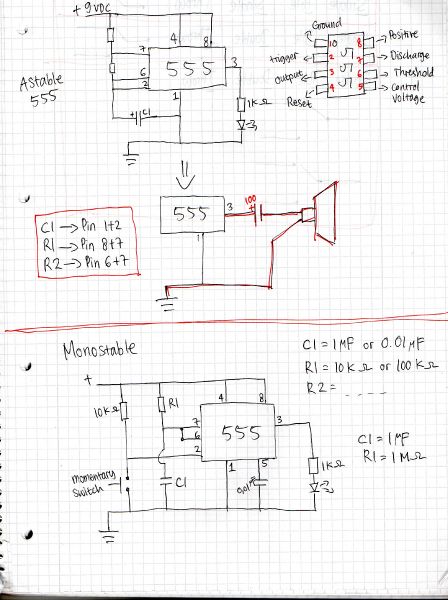 +9VDC
Astable
555
4
8
7
555
3
6
2
1
1KΩ
+
C1
Ground
Positive
10
8
trigger
2
7
Discharge
output
3
6
Threshold
Reset
4
5
Control
voltage
C1 → Pin 1+2
R1 → Pin 8+7
R2 → Pin 6+7
555
3
100
+
1
Monostable
C1 = 1µF or 0.01µF
R1 = 10KΩ or 100KΩ
R2 = - - - -
+
10KΩ
R1
4
8
7
6
2
555
3
1
5
momentary
switch
C1
0.01
1KΩ
C1 = 1µF
R1 = 1MΩ